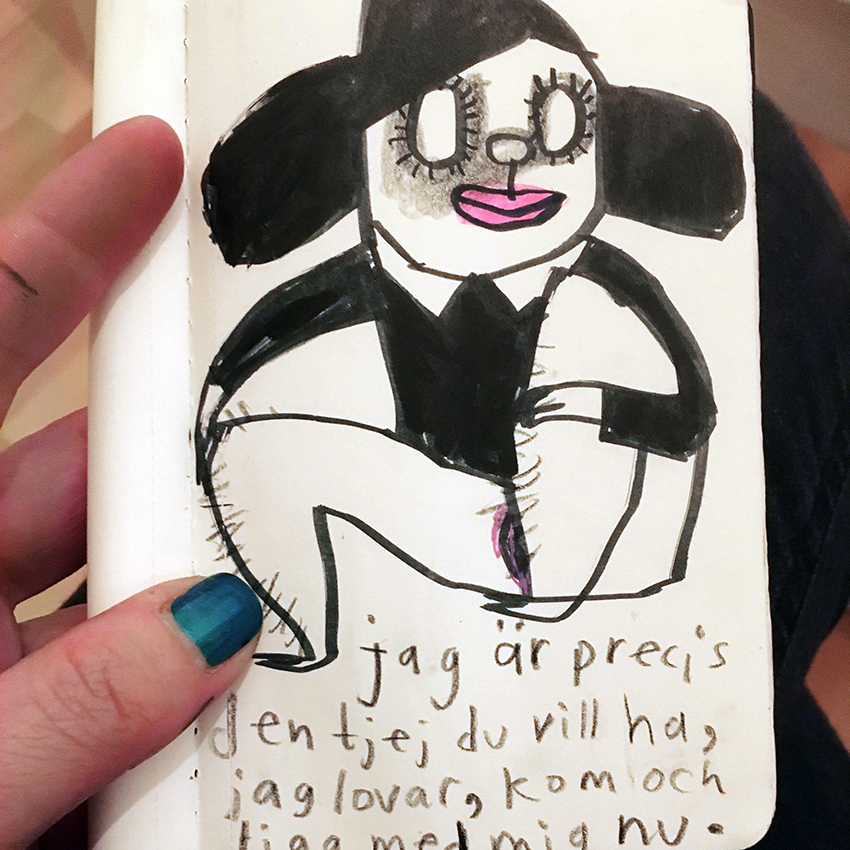 jag är precis
den tjej du vill ha,
jag lovar, kom och
ligg med mig nu.